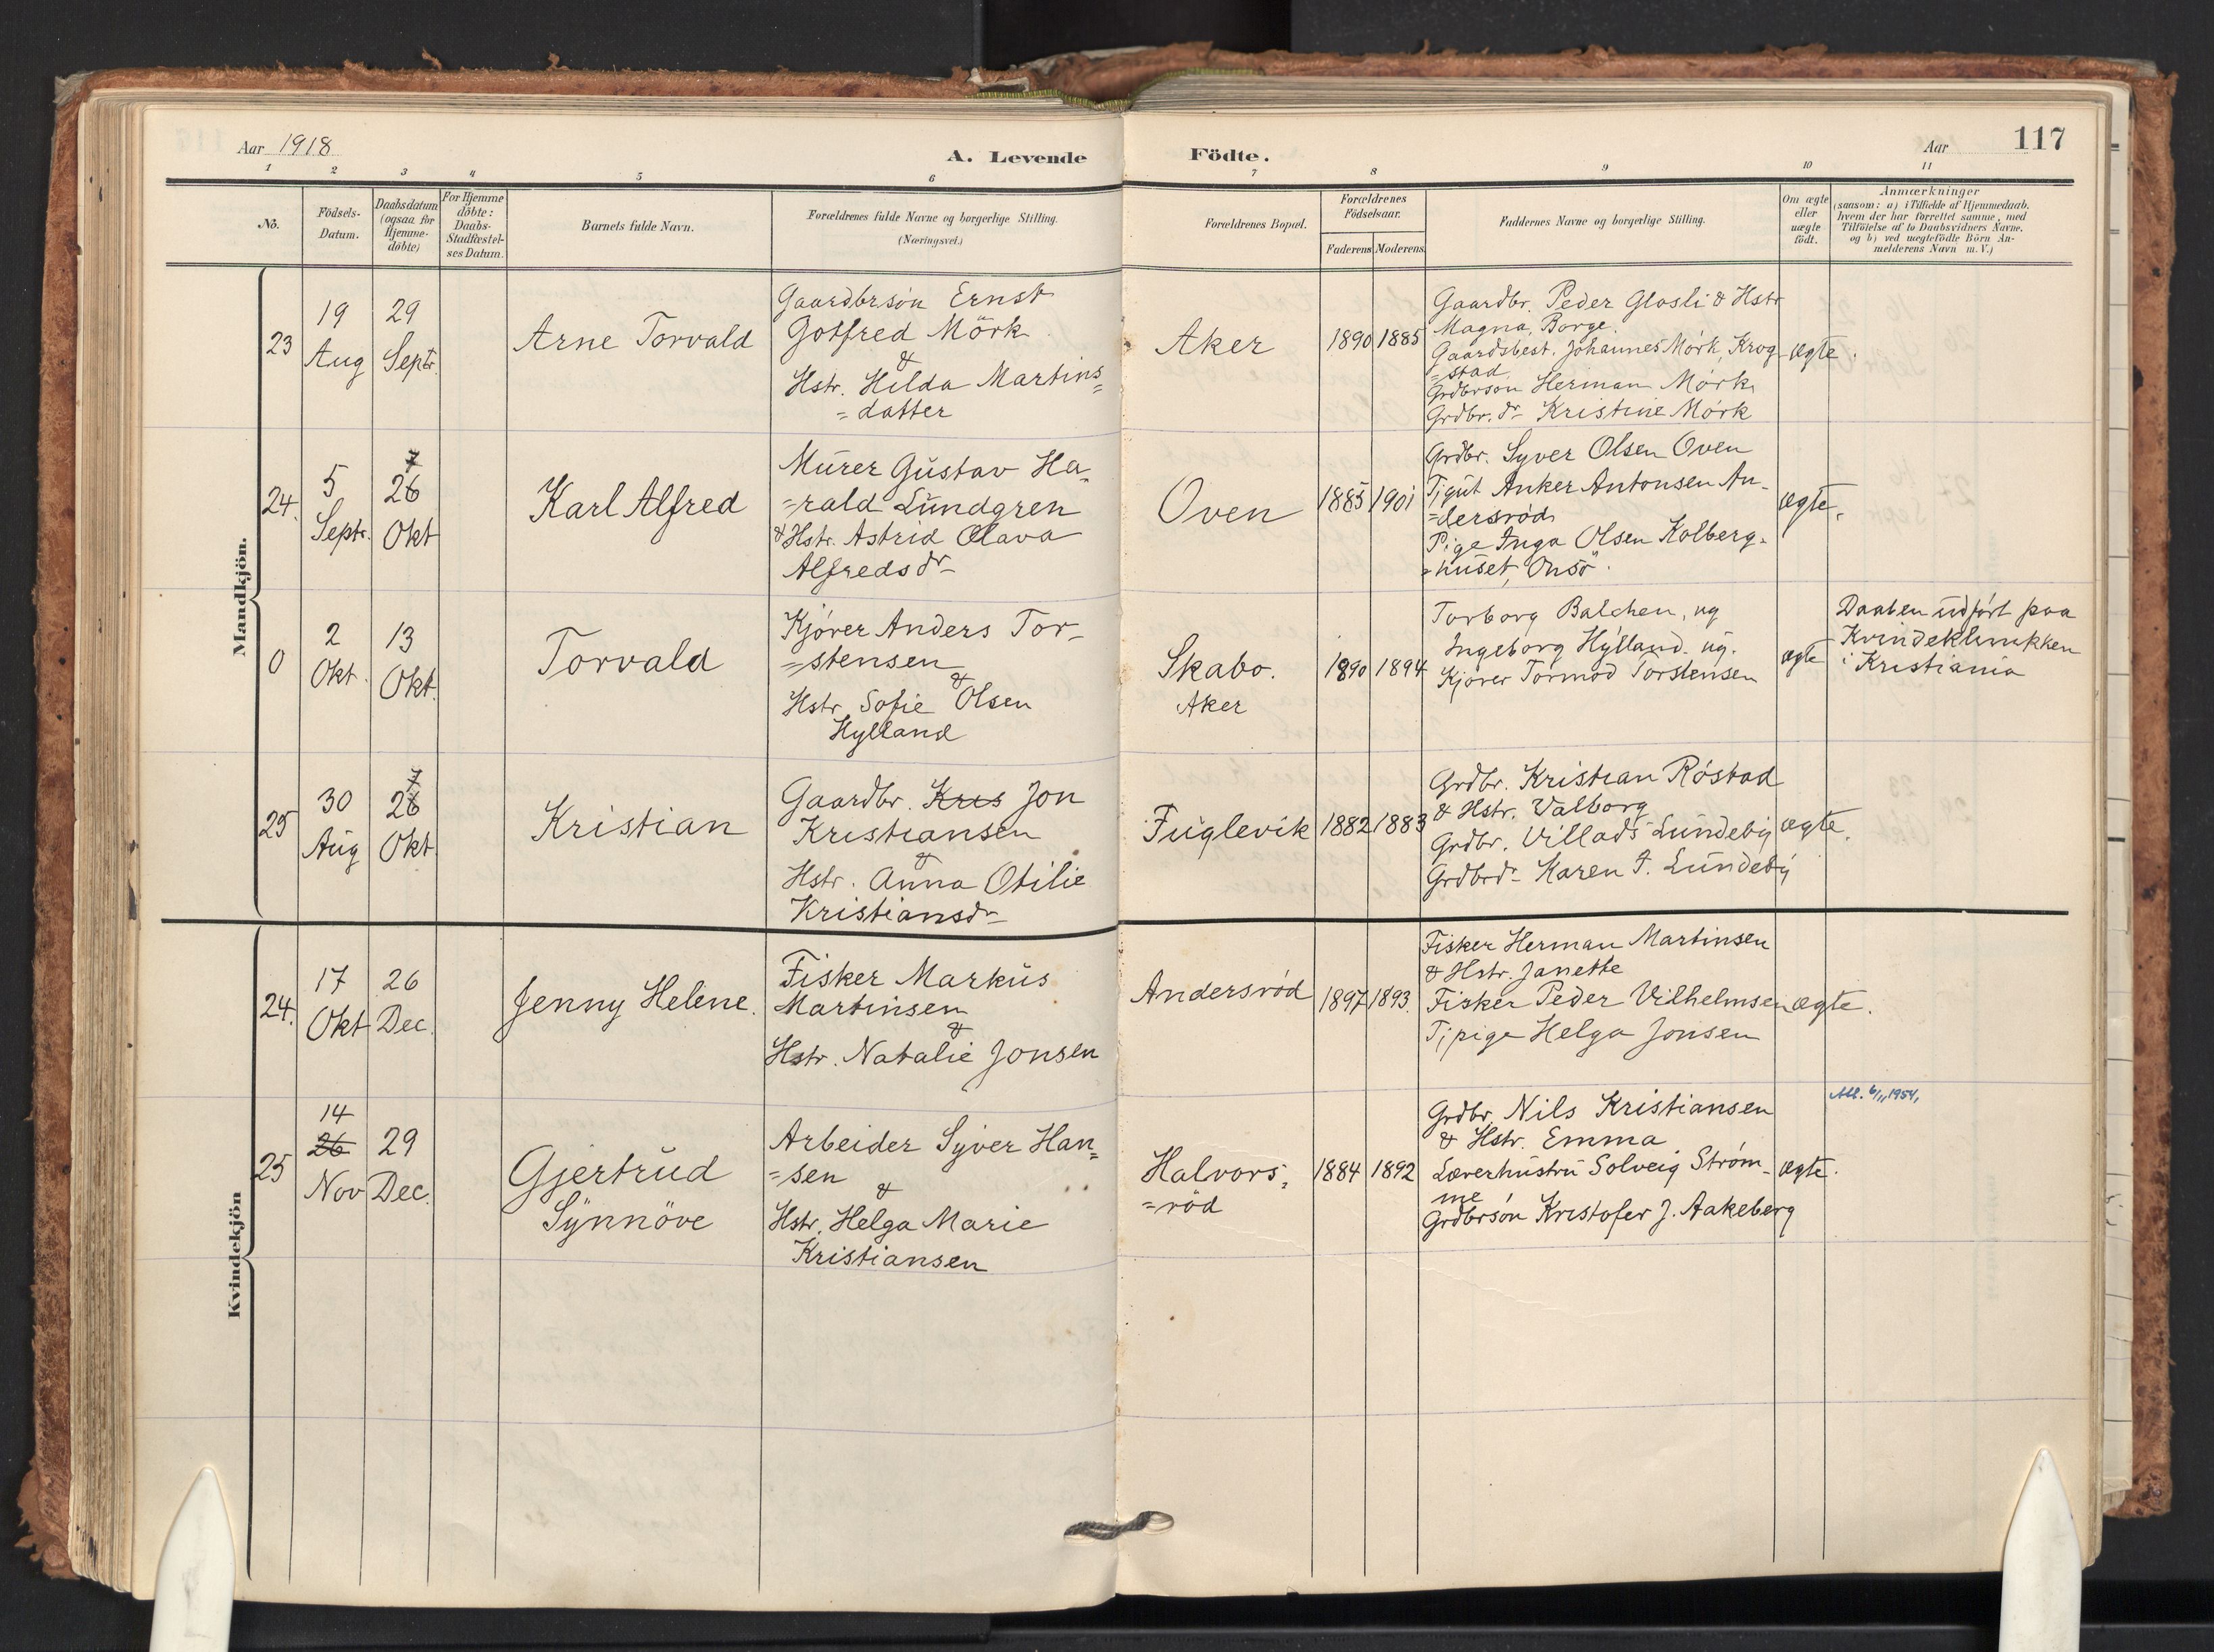 Aar 1918
A. Levende
Födte.
Aar
117
1 2 3 4 5 6 7 8 9 10 11
No.
Födsels-
Datum.
Daabsdatum
(ogsaa for
Hjemme-
döbte)
For Hjemme
döbte:
Daabs-
Stadfæstel-
ses Datum.
Barnets fulde Navn.
Forældrenes fulde Navne og borgerlige Stilling.
(Næringsvei.)
Forældrenes Bopæl.
Forældrenes
Födselsaar.
Faderens Moderens
Faddernes Navne og borgerlige Stilling.
Om ægte
eller
uægte
födt.
Anmærkninger
(saasom: a) i Tilfælde af Hjemmedaab,
hvem der har forrettet samme, med
Tilföielse af to Daabsvidners Navne.
og b) ved uægtefödte Börn An-
melderens Navn m. V.)
Mandkjön.
23
19
Aug
29
Septr.
Arne Torvald
Gaardbrsön Ernst
Gotfred Mörk
&
Hstr. Hilda Martins=
=datter
Aker
1890 1885
Gaardbr. Peder Glosli & Hstr
Magna, Borge.
Gaardsbest. Johannes Mörk, Krog
=stad
Grdbrson Herman Mörk
Grdbr.dr Kristine Mörk
ægte.
24.
5
Septr.
7
26
Okt
Karl Alfred
Murer Gustav Ha=
=rald Lundgren
& Hstr. Astrid Olava
Alfredsdr
Oven
1885 1901
Grdbr. Syver Olsen Oven
Tjgut Anker Antonsen An-
=dersröd
Pige Inga Olsen Kolberg-
=huset, Onsö.
ægte.
0
2
Okt.
13
Okt.
Torvald
Kjörer Anders Tor-
=stensen
&
Hstr. Sofie Olsen
Hylland
Skabo.
Aker
1890 1894
Torborg Balchen, ug
Ingeborg Hylland. ug.
Kjörer Tormod Torstensen
ægte
Daaben udfört paa
Kvindeklinikken
i Kristiania
25
30
Aug
7
26
Okt
Kristian
Gaardbr. Kris Jon
Kristiansen
&
Hstr. Anna Otilie
Kristiansdr
Fuglevik
1882 1883
Grdbr. Kristian Röstad
& Hstr. Valborg
Grdbr. Villads Lundeby
Grdbrdr Karen J. Lundeby
ægte.
Kvindekjön
24.
17
Okt
26
Dec.
Jenny Helene.
Fisker Markus
Martinsen
&
Hstr. Natalie Jonsen
Andersröd
1897 1893.
Fisker Herman Martinsen
& Hstr. Janette
Fisker Peder Vilhelmsen
Tjpige Helga Jonsen
ægte.
25
14
26
Nov
29
Dec.
Gjertrud
Synnöve
Arbeider Syver Han=
=sen
&
Hstr. Helga Marie
Kristiansen
Halvors=
=röd
1884 1892
Grdbr. Nils Kristiansen
& Hstr. Emma
Lærerhustru Solveig Ström-
me
Grdbrsön Kristofer J. Aakeberg
ægte.
6/11 1954.